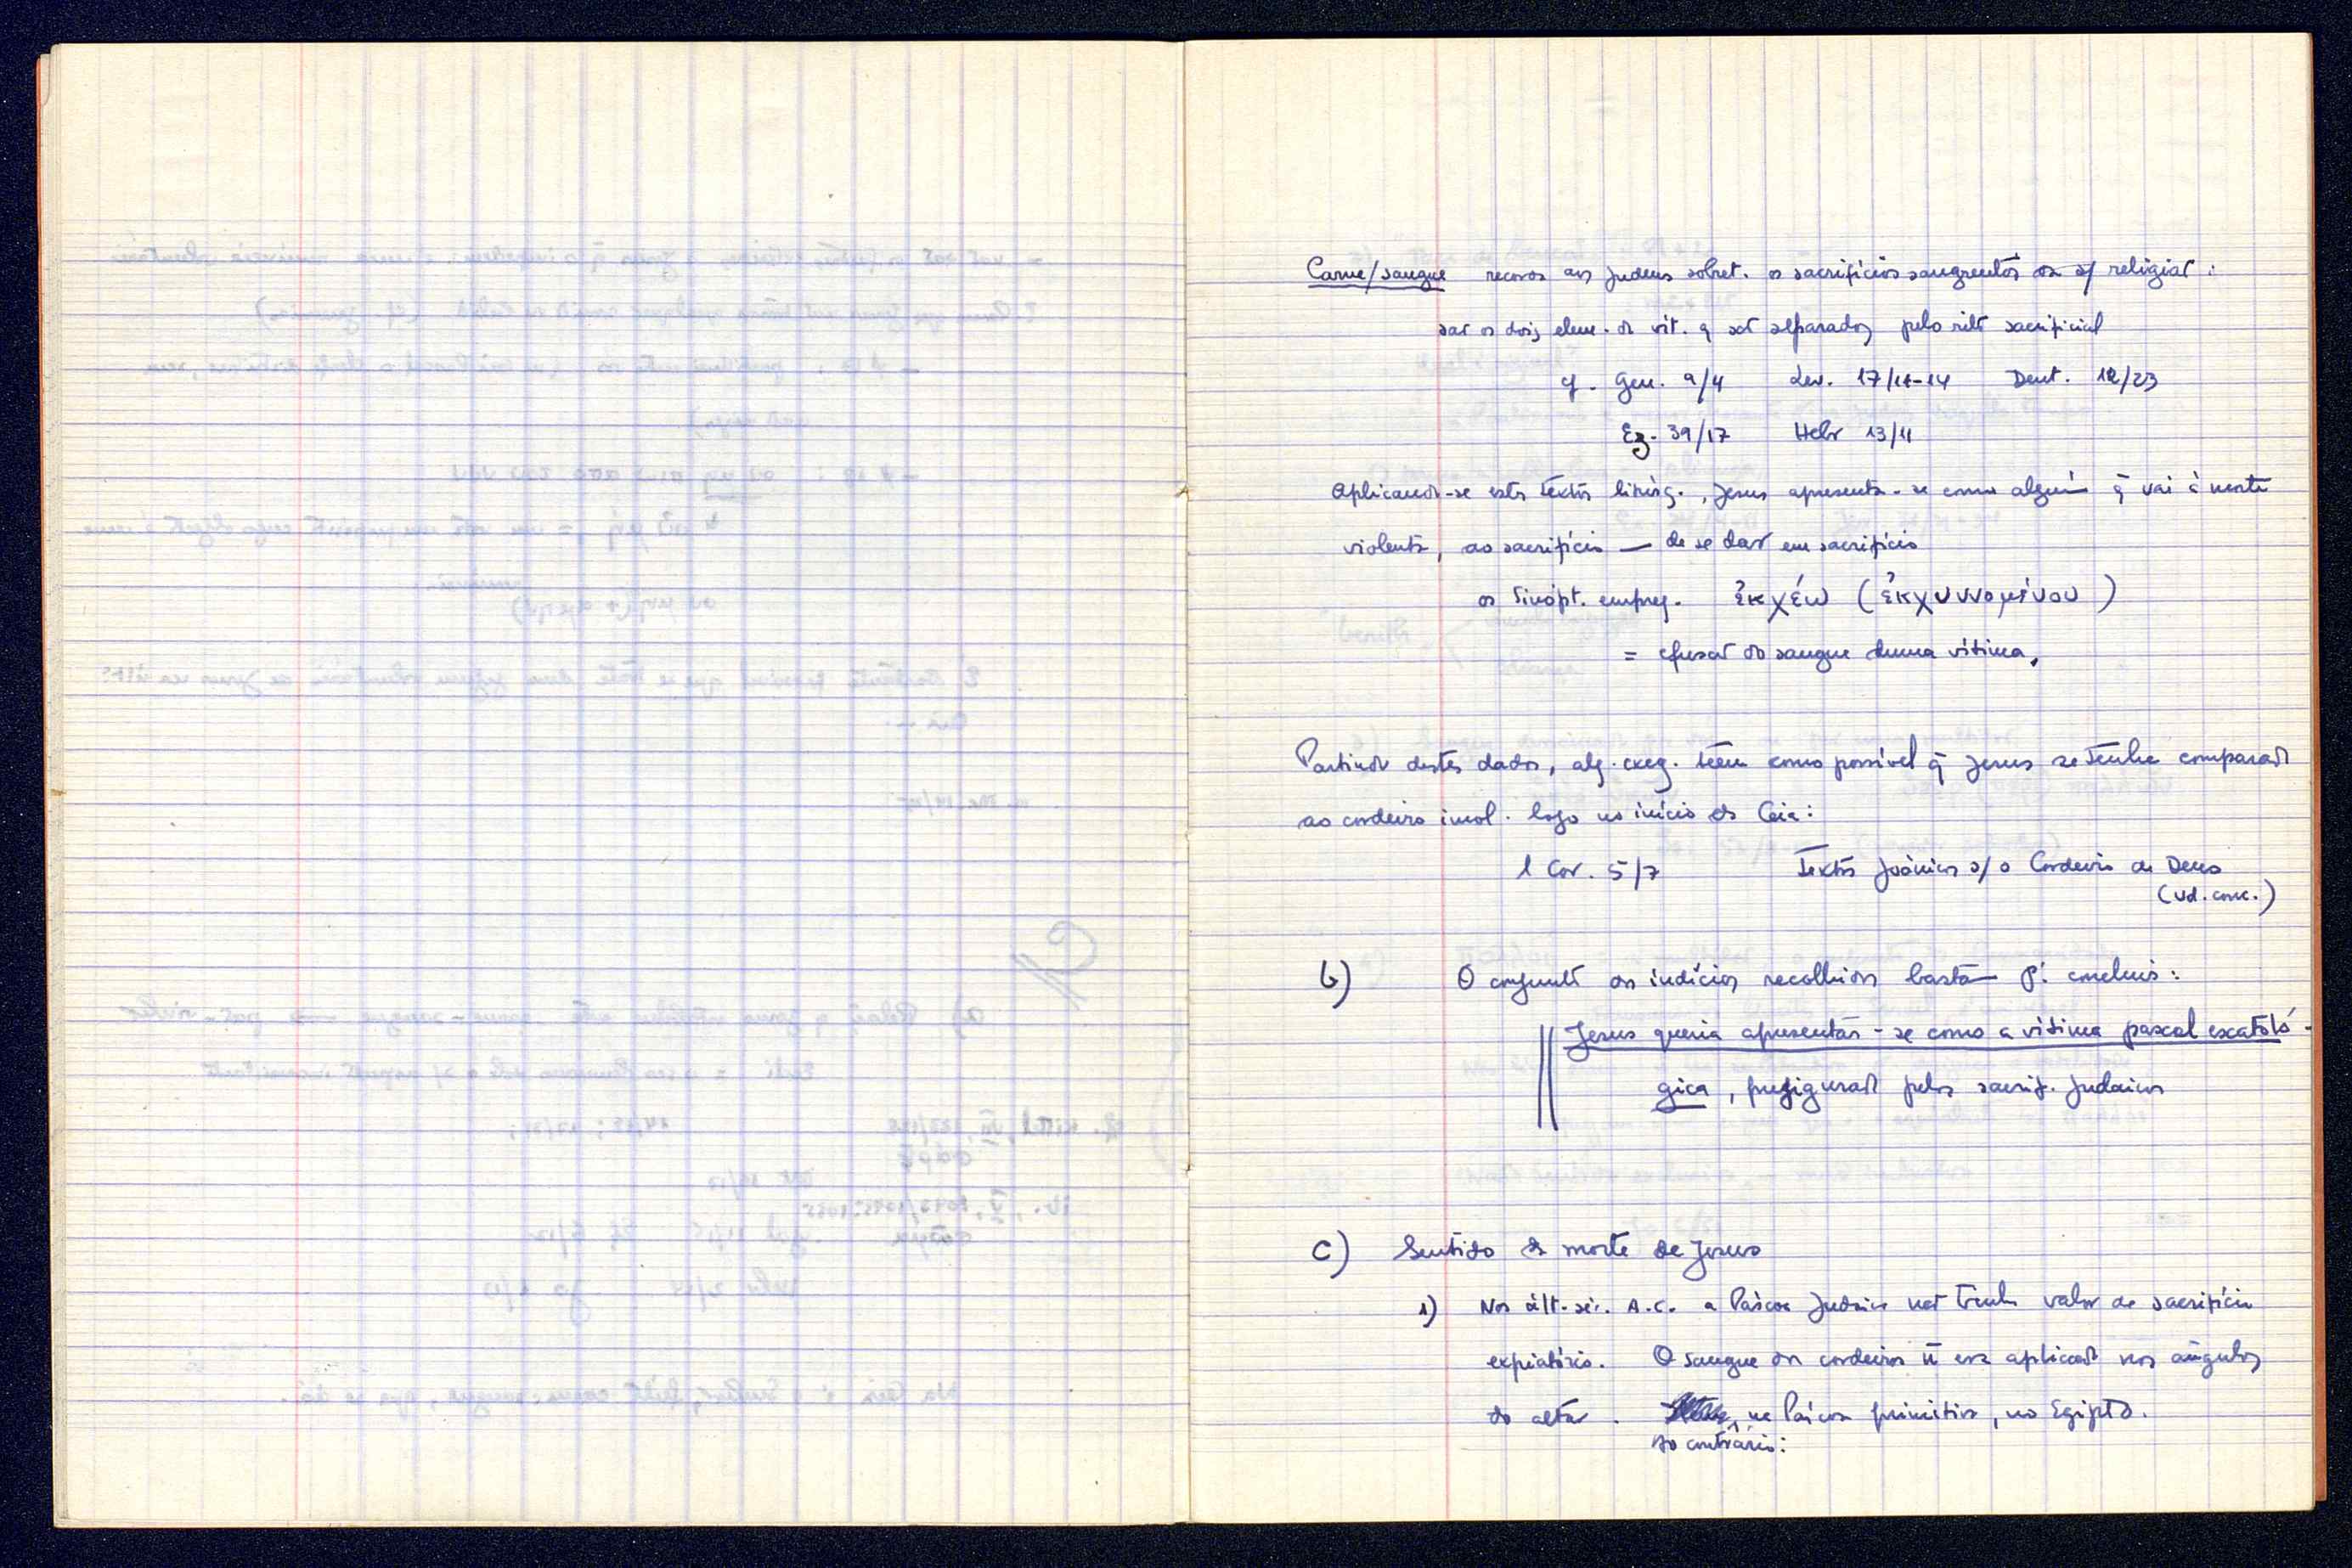 Carne/sangue recorda aos judeus sobret. os sacrifícios sangrentos da s/ religião:
são os dois elem. da vit. q são separados pelo rito sacrificial
cf. Gen. 9/4 Lev. 17/11-14 Deut. 12/23
Ez. 39/17 Hebr 13/11
Aplicando-se estes textos litúrg., Jesus apresenta-se como alguém q̄ vai à morte
violenta, ao sacrifício — de se dar em sacrifício
os Sinópt. empreg. ἐκχέω (ἐκχυννομένου)
= efusão do sangue duma vítima.
Partindo destes dados, alg. exeg. têem como possível q̄ Jesus se tenha comparado
ao cordeiro imol. logo no início da Ceia:
1 Cor. 5/7 Textos Joânicos s/ o Cordeiro de Deus
(vd. conc.)
b) O conjunto dos indícios recolhidos basta p. concluir:
Jesus queria apresentar-se como a vítima pascal escatoló-
gica, prefigurado pelos sacrif. judaicos
c) Sentido da morte de Jesus
1) Nos últ. séc. A.C. a Páscoa Judaica não tinha valor de sacrifício
expiatório. O sangue dos cordeiros ñ era aplicado nos ângulos
do altar. na Páscoa primitiva, no Egipto.
Ao contrário: